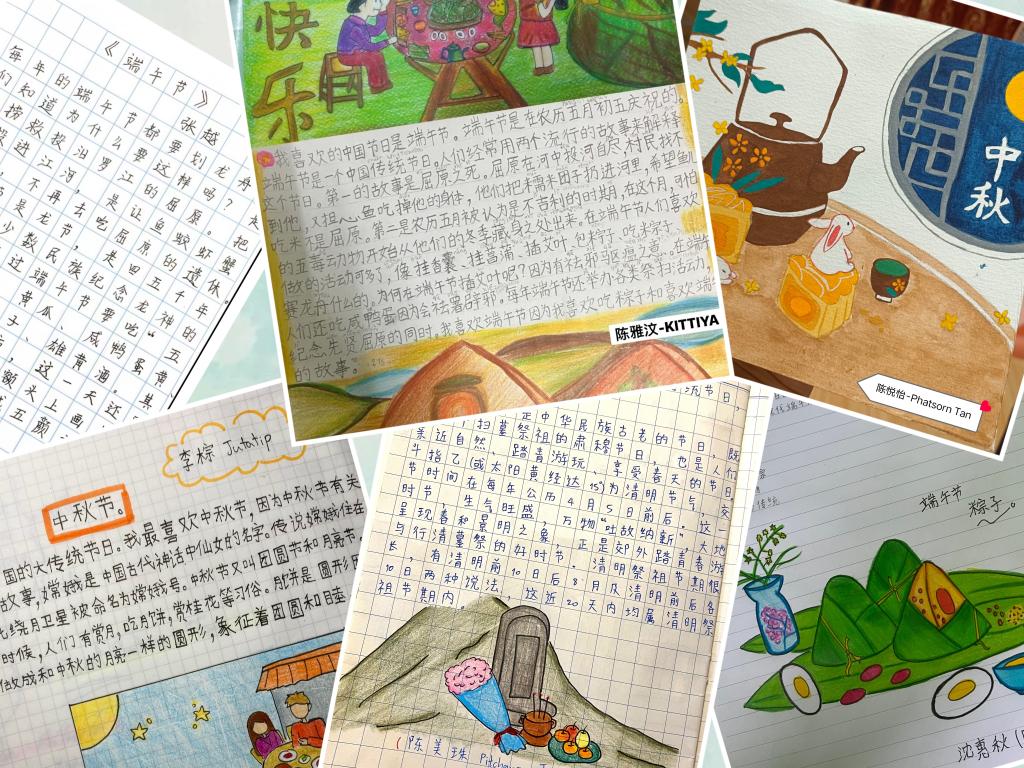 《端午节》
张越
每年的端午节都要划龙舟
们知道为什么要这样吗？
捞救投汨罗江的屈原。把
进江河，是让鱼蛟虾蟹
，不再去吃屈原的遗体。
是龙节，是四五千年
少数民族纪念龙神的
过端午节要吃“五
黄瓜、咸鸭蛋黄
子、雄黄酒。其
，这一天还
额头上画
快
乐
我喜欢的中国节日是端午节。端午节是在农历五月初五庆祝的。
端午节是一个中国传统节日。人们经常用两个流行的故事来解释
这个节日。第一的故事是屈原之死。屈原在河中投河自尽，村民找不
到他，又担心鱼吃掉他的身体，他们把糯米团子扔进河里，希望鱼
吃米不是屈原。第二是农历五月被认为是不吉利的时期，在这个月，可怕
的五毒动物开始从他们的冬季藏身之处出来。在端午节人们喜欢
做的活动可多了，像挂香囊、挂菖蒲、插艾叶、包粽子、吃粽子、
赛龙舟什么的。为何在端午节插艾叶呢？因为有祛邪驱瘟之意。在端午
人们还吃咸鸭蛋因为会祛暑辟邪。每年端午节还举办各来祭扫活动，
纪念先贤屈原的同时。我喜欢端午节因为我喜欢吃粽子和喜欢端
的故事。
陈雅汶-KITTIYA
中
秋
陈悦怡-Phatsorn Tan
李粽 Jutatip
中秋节。
国的大传统节日。我最喜欢中秋节。因为中秋节有关
故事，嫦娥是中国古代神话中仙女的名字。传说嫦娥住在
绕月卫星被命名为嫦娥号。中秋节又叫团圆节和月亮节。
时候，人们有赏月，吃月饼，赏桂花等习俗。月饼是圆形
做成和中秋的月亮一样的圆形，象征着团圆和睦
节日，
是中华民族古老的节日，既
扫墓祭祖的肃穆节日，也是人们
亲近自然、踏青游玩、享受春天的节日。
斗指乙（或太阳黄经达15°）为清明节气，交
节时间在每年公历4月5日前后。这一
时节，生气旺盛，万物“吐故纳新”，大地
呈现春和景明之象，正是郊外踏青春游
与行清墓祭的好时节。清明祭祖节期很
长，有清明前10日后8月及清明前后各
10日两种说法，这近20天内均属清明祭
祖节期内。
陈美珠
端午节
粽子。
沈惠秋